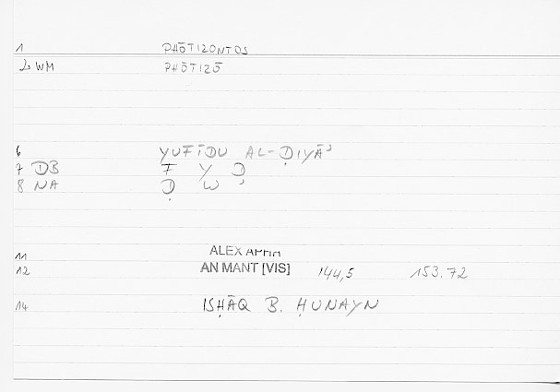 1 PHŌTIZONTOS
2 WM PHŌTIZŌ
6 YUFĪDU AL-ḌIYĀʾ
7 DB F Y Ḍ
8 NA Ḍ W ʾ
11 ALEX APHR
12 AN MANT [VIS] 144,5 153.72
14 ISḤĀQ B. ḤUNAYN